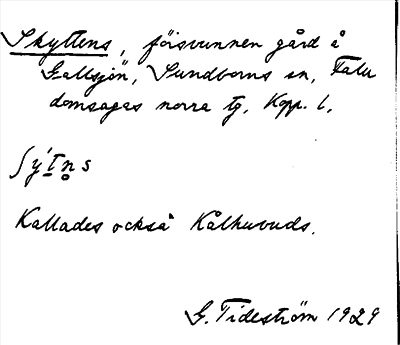 Skyttens, försvunnen gård å
Gallsjön, Sundborns sn, Falu
domsagas norra tg, Kopp. l.
ʃýtn̥s
Kallades också Kålhuvuds.
G. Tideström 1929